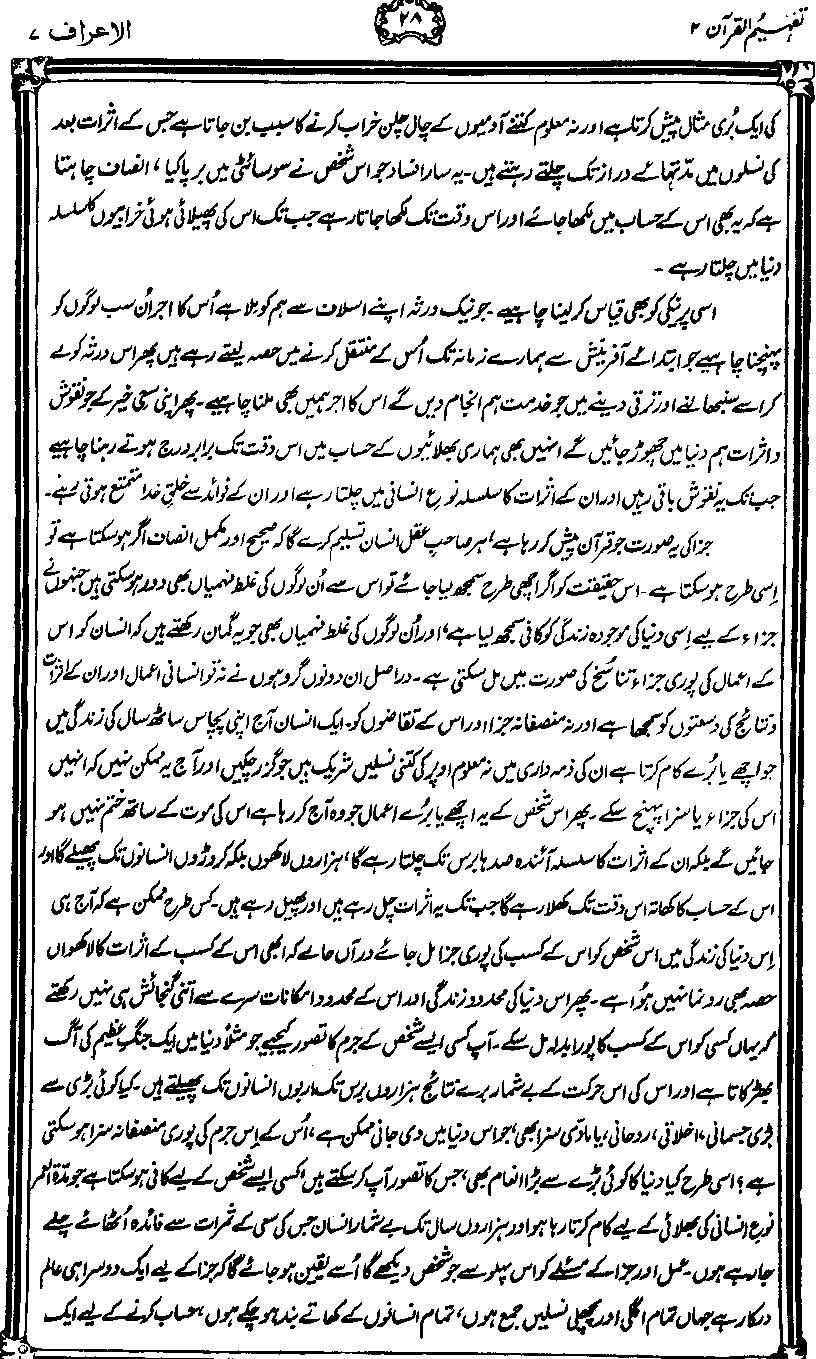 تفہیم القرآن ۲
۲۸
الاعراف ۷
کی ایک بُری مثال پیش کرتا ہے اور نہ معلوم کتنے آدمیوں کے چال چلن خراب کرنے کا سبب بن جاتا ہے جس کے اثرات بعد
کی نسلوں میں مدّتہائے دراز تک چلتے رہتے ہیں۔ یہ سارا فساد جو اس شخص نے سوسائٹی میں برپا کیا، انصاف چاہتا
ہے کہ یہ بھی اس کے حساب میں لکھا جائے اور اس وقت تک لکھا جاتا رہے جب تک اس کی پھیلائی ہوئی خرابیوں کا سلسلہ
دنیا میں چلتا رہے ۔
اسی پر نیکی کو بھی قیاس کر لینا چاہیے ۔ جو نیک ورثہ اپنے اسلاف سے ہم کو ملا ہے اُس کا اجر اُن سب لوگوں کو
پہنچنا چاہیے جو ابتدائے آفرینش سے ہمارے زمانہ تک اُس کے منتقل کرنے میں حصہ لیتے رہے ہیں پھر اس ورثہ کو لے
کر اسے سنبھالنے اور ترقی دینے میں جو خدمت ہم انجام دیں گے اس کا اجر ہمیں بھی ملنا چاہیے ۔ پھر اپنی سعی خیر کے جو نقوش
و اثرات ہم دنیا میں چھوڑ جائیں گے انہیں بھی ہماری بھلائیوں کے حساب میں اس وقت تک برابر درج ہوتے رہنا چاہیے
جب تک یہ نقوش باقی رہیں اور ان کے اثرات کا سلسلہ نوع انسانی میں چلتا رہے اور ان کے فوائد سے خلقِ خدا متمتع ہوتی رہے۔
جزا کی یہ صورت جو قرآن پیش کر رہا ہے، ہر صاحبِ عقل انسان تسلیم کرے گا کہ صحیح اور مکمل انصاف اگر ہو سکتا ہے تو
اِسی طرح ہو سکتا ہے ۔ اس حقیقت کو اگر اچھی طرح سمجھ لیا جائے تو اس سے اُن لوگوں کی غلط فہمیاں بھی دور ہو سکتی ہیں جنہوں نے
جزاء کے لیے اِسی دنیا کی موجودہ زندگی کو کافی سمجھ لیا ہے، اور اُن لوگوں کی غلط فہمیاں بھی جو یہ گمان رکھتے ہیں کہ انسان کو اس
کے اعمال کی پوری جزاء تناسُخ کی صورت میں مل سکتی ہے ۔ دراصل ان دونوں گروہوں نے نہ تو انسانی اعمال اور ان کے اثرات
و نتائج کی وسعتوں کو سمجھا ہے اور نہ منصفانہ جزا اور اس کے تقاضوں کو۔ ایک انسان آج اپنی پچاس ساٹھ سال کی زندگی میں
جو اچھے یا بُرے کام کرتا ہے ان کی ذمہ داری میں نہ معلوم اوپر کی کتنی نسلیں شریک ہیں جو گزر چکیں اور آج یہ ممکن نہیں کہ انہیں
اس کی جزاء یا سزا پہنچ سکے ۔ پھر اس شخص کے یہ اچھے یا بُرے اعمال جو وہ آج کر رہا ہے اس کی موت کے ساتھ ختم نہیں ہو
جائیں گے بلکہ ان کے اثرات کا سلسلہ آئندہ صدہا برس تک چلتا رہے گا، ہزاروں لاکھوں بلکہ کروڑوں انسانوں تک پھیلے گا اور
اس کے حساب کا کھاتہ اس وقت تک کھلا رہے گا جب تک یہ اثرات چل رہے ہیں اور پھیل رہے ہیں۔ کس طرح ممکن ہے کہ آج ہی
اِس دنیا کی زندگی میں اس شخص کو اس کے کسب کی پوری جزا مل جائے درآں حالے کہ ابھی اس کے کسب کے اثرات کا لاکھواں
حصہ بھی رونما نہیں ہُوا ہے ۔ پھر اس دنیا کی محدود زندگی اور اس کے محدود امکانات سرے سے اتنی گنجائش ہی نہیں رکھتے
کہ یہاں کسی کو اس کے کسب کا پورا بدلہ مل سکے ۔ آپ کسی ایسے شخص کے جرم کا تصور کیجیے جو مثلًا دنیا میں ایک جنگِ عظیم کی آگ
بھڑکاتا ہے اور اس کی اس حرکت کے بے شمار برے نتائج ہزاروں برس تک اربوں انسانوں تک پھیلتے ہیں۔ کیا کوئی بڑی سے
بڑی جسمانی، اخلاقی، روحانی، یا مادّی سزا بھی، جو اس دنیا میں دی جانی ممکن ہے، اُس کے اِس جرم کی پوری منصفانہ سزا ہو سکتی
ہے؟ اسی طرح کیا دنیا کا کوئی بڑے سے بڑا انعام بھی، جس کا تصور آپ کر سکتے ہیں، کسی ایسے شخص کے لیے کافی ہو سکتا ہے جو مدّۃ العمر
نوعِ انسانی کی بھلائی کے لیے کام کرتا رہا ہو اور ہزاروں سال تک بے شمار انسان جس کی سعی کے ثمرات سے فائدہ اُٹھائے چلے
جا رہے ہوں۔ عمل اور جزاء کے مسئلے کو اس پہلو سے جو شخص دیکھے گا اُسے یقین ہو جائے گا کہ جزا کے لیے ایک دوسرا ہی عالم
درکار ہے جہاں تمام اگلی اور پچھلی نسلیں جمع ہوں، تمام انسانوں کے کھاتے بند ہو چکے ہوں، حساب کرنے کے لیے ایک